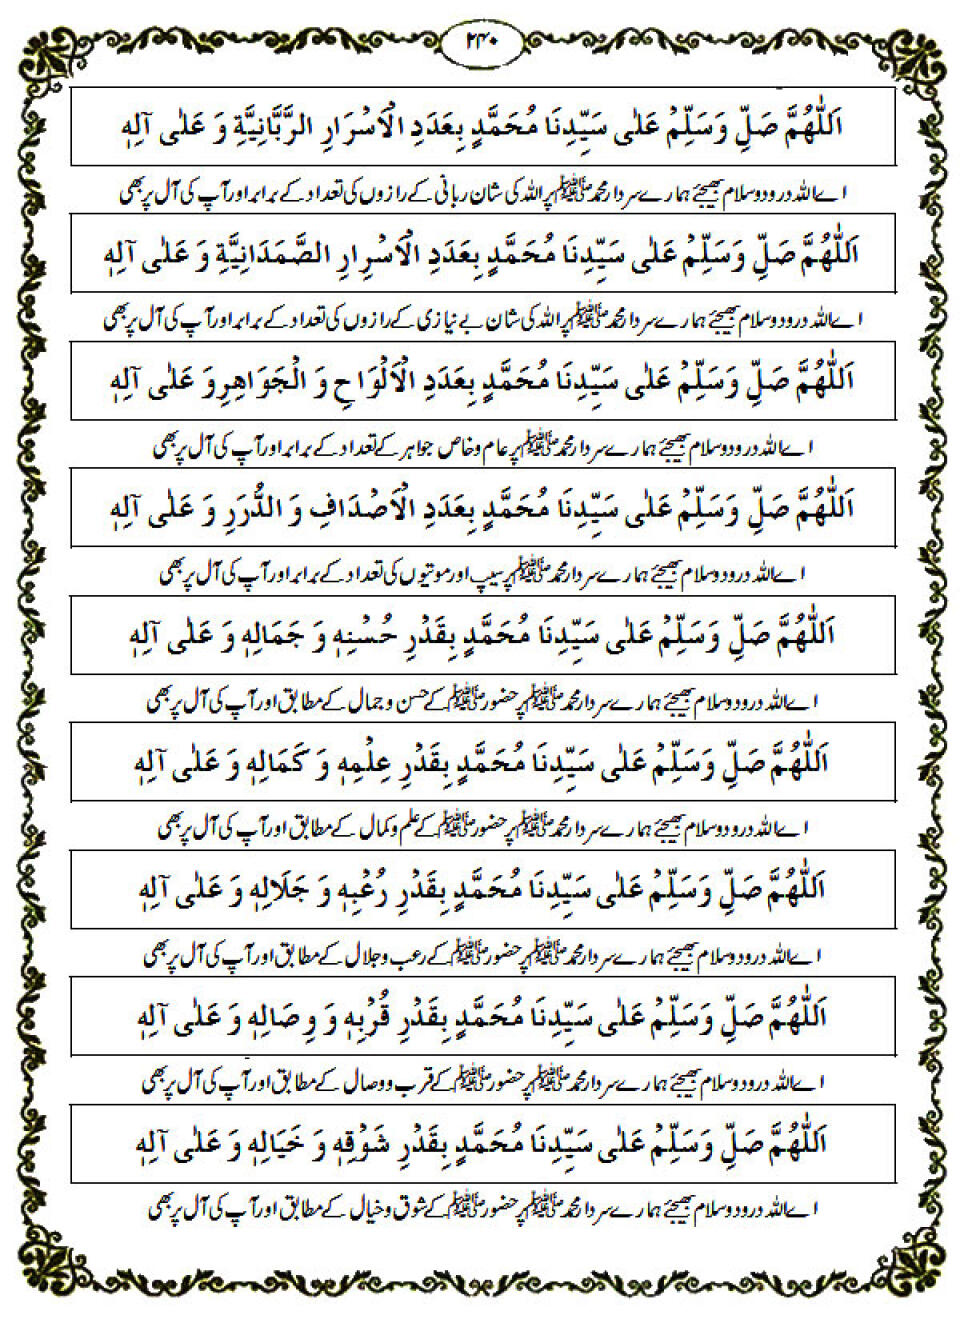 ۲۴۰
اَللّٰهُمَّ صَلِّ وَسَلِّمْ عَلٰى سَيِّدِنَا مُحَمَّدٍ بِعَدَدِ الْاَسْرَارِ الرَّبَّانِيَّةِ وَ عَلٰى آلِهٖ
اے اللہ درود و سلام بھیجئے ہمارے سردار محمد ﷺ پر اللہ کی شان ربانی کے رازوں کی تعداد کے برابر اور آپ کی آل پر بھی
اَللّٰهُمَّ صَلِّ وَسَلِّمْ عَلٰى سَيِّدِنَا مُحَمَّدٍ بِعَدَدِ الْاَسْرِارِ الصَّمَدَانِيَّةِ وَ عَلٰى آلِهٖ
اے اللہ درود و سلام بھیجئے ہمارے سردار محمد ﷺ پر اللہ کی شان بے نیازی کے رازوں کی تعداد کے برابر اور آپ کی آل پر بھی
اَللّٰهُمَّ صَلِّ وَسَلِّمْ عَلٰى سَيِّدِنَا مُحَمَّدٍ بِعَدَدِ الْاَلْوَاحِ وَ الْجَوَاهِرِ وَ عَلٰى آلِهٖ
اے اللہ درود و سلام بھیجئے ہمارے سردار محمد ﷺ پر عام و خاص جواہر کے تعداد کے برابر اور آپ کی آل پر بھی
اَللّٰهُمَّ صَلِّ وَسَلِّمْ عَلٰى سَيِّدِنَا مُحَمَّدٍ بِعَدَدِ الْاَصْدَافِ وَ الدُّرَرِ وَ عَلٰى آلِهٖ
اے اللہ درود و سلام بھیجئے ہمارے سردار محمد ﷺ پر سیپ اور موتیوں کی تعداد کے برابر اور آپ کی آل پر بھی
اَللّٰهُمَّ صَلِّ وَسَلِّمْ عَلٰى سَيِّدِنَا مُحَمَّدٍ بِقَدْرِ حُسْنِهٖ وَ جَمَالِهٖ وَ عَلٰى آلِهٖ
اے اللہ درود و سلام بھیجئے ہمارے سردار محمد ﷺ پر حضور ﷺ کے حسن و جمال کے مطابق اور آپ کی آل پر بھی
اَللّٰهُمَّ صَلِّ وَسَلِّمْ عَلٰى سَيِّدِنَا مُحَمَّدٍ بِقَدْرِ عِلْمِهٖ وَ كَمَالِهٖ وَ عَلٰى آلِهٖ
اے اللہ درود و سلام بھیجئے ہمارے سردار محمد ﷺ پر حضور ﷺ کے علم و کمال کے مطابق اور آپ کی آل پر بھی
اَللّٰهُمَّ صَلِّ وَسَلِّمْ عَلٰى سَيِّدِنَا مُحَمَّدٍ بِقَدْرِ رُعْبِهٖ وَ جَلَالِهٖ وَ عَلٰى آلِهٖ
اے اللہ درود و سلام بھیجئے ہمارے سردار محمد ﷺ پر حضور ﷺ کے رعب و جلال کے مطابق اور آپ کی آل پر بھی
اَللّٰهُمَّ صَلِّ وَسَلِّمْ عَلٰى سَيِّدِنَا مُحَمَّدٍ بِقَدْرِ قُرْبِهٖ وَ وِصَالِهٖ وَ عَلٰى آلِهٖ
اے اللہ درود و سلام بھیجئے ہمارے سردار محمد ﷺ پر حضور ﷺ کے قرب و وصال کے مطابق اور آپ کی آل پر بھی
اَللّٰهُمَّ صَلِّ وَسَلِّمْ عَلٰى سَيِّدِنَا مُحَمَّدٍ بِقَدْرِ شَوْقِهٖ وَ خَيَالِهٖ وَ عَلٰى آلِهٖ
اے اللہ درود و سلام بھیجئے ہمارے سردار محمد ﷺ پر حضور ﷺ کے شوق و خیال کے مطابق اور آپ کی آل پر بھی